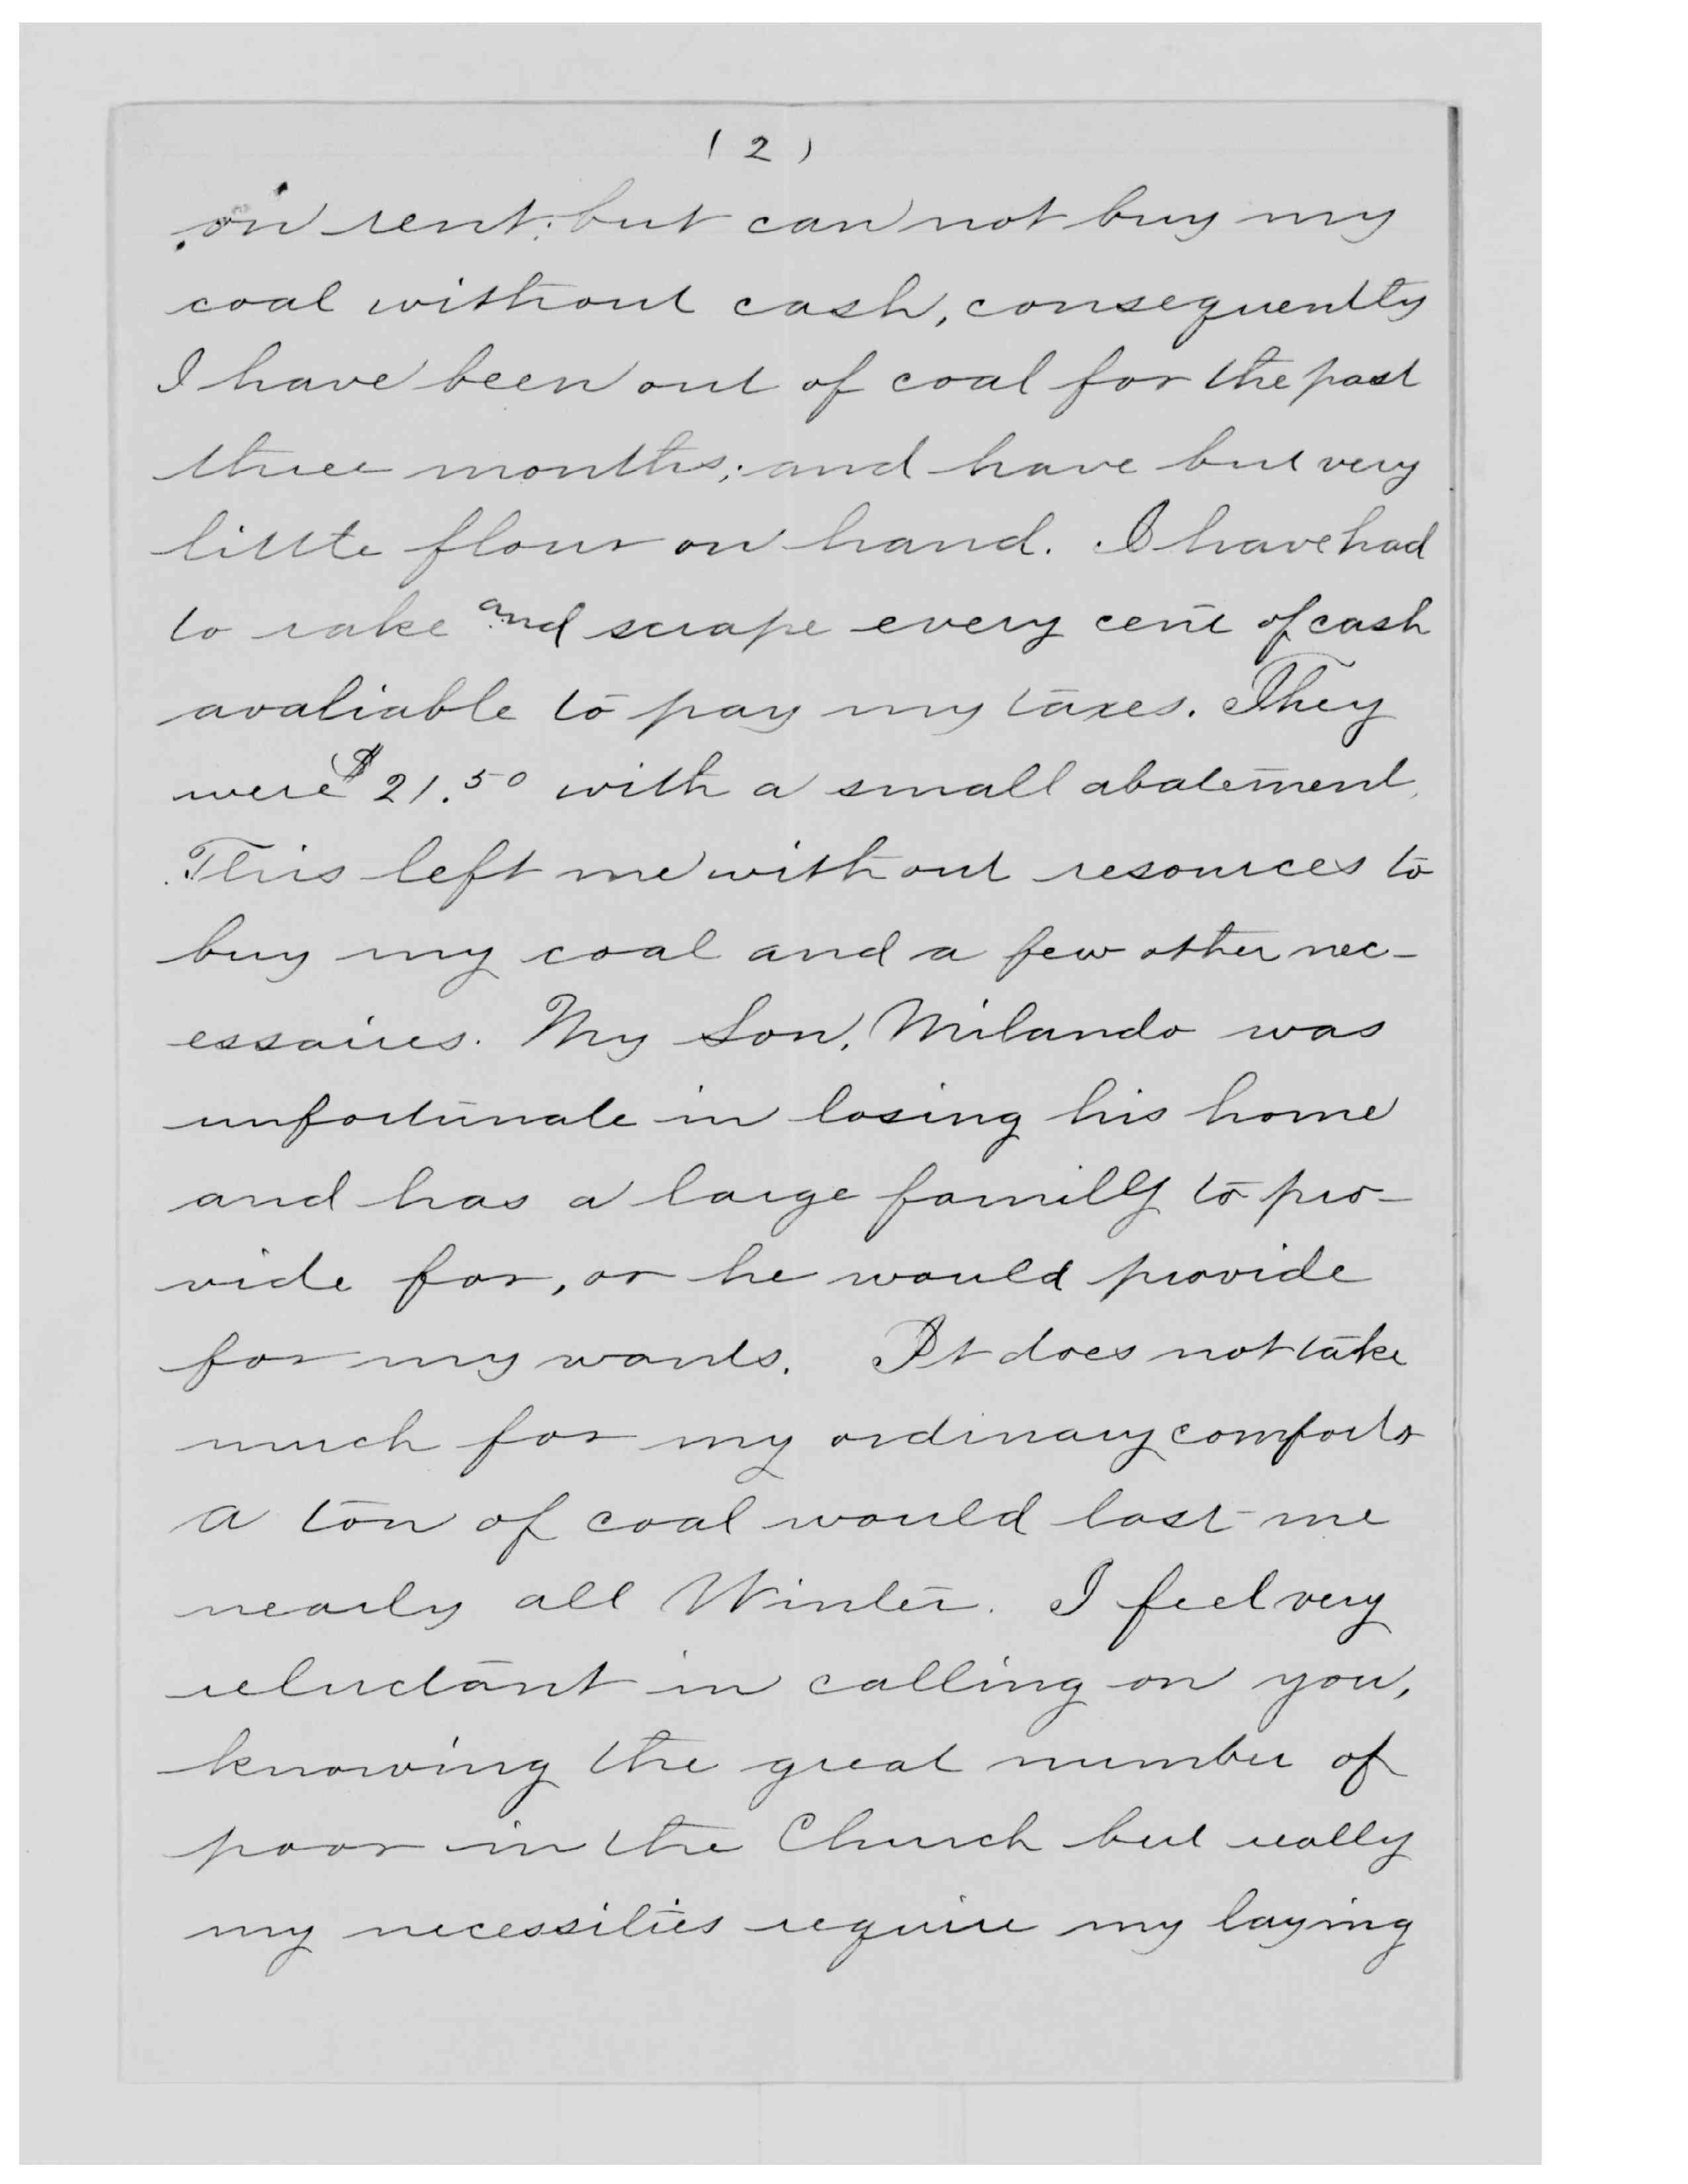 (2)
on rent; but can not buy my
coal without cash, consequently
I have been out of coal for the past
three months; and have but very
little flour on hand. I have had
to rake and scrape every cent of cash
avaliable to pay my taxes. They
were $21.50 with a small abatement.
This left me without resources to
buy my coal and a few other nec-
essaires. My Son, Milando was
unfortunate in losing his home
and has a large familly to pro-
vide for, or he would provide
for my wants. It does not take
much for my ordinary comforts
a ton of coal would last me
nearly all Winter. I feel very
reluctant in calling on you,
knowing the great number of
poor in the Church but really
my necessities require my laying